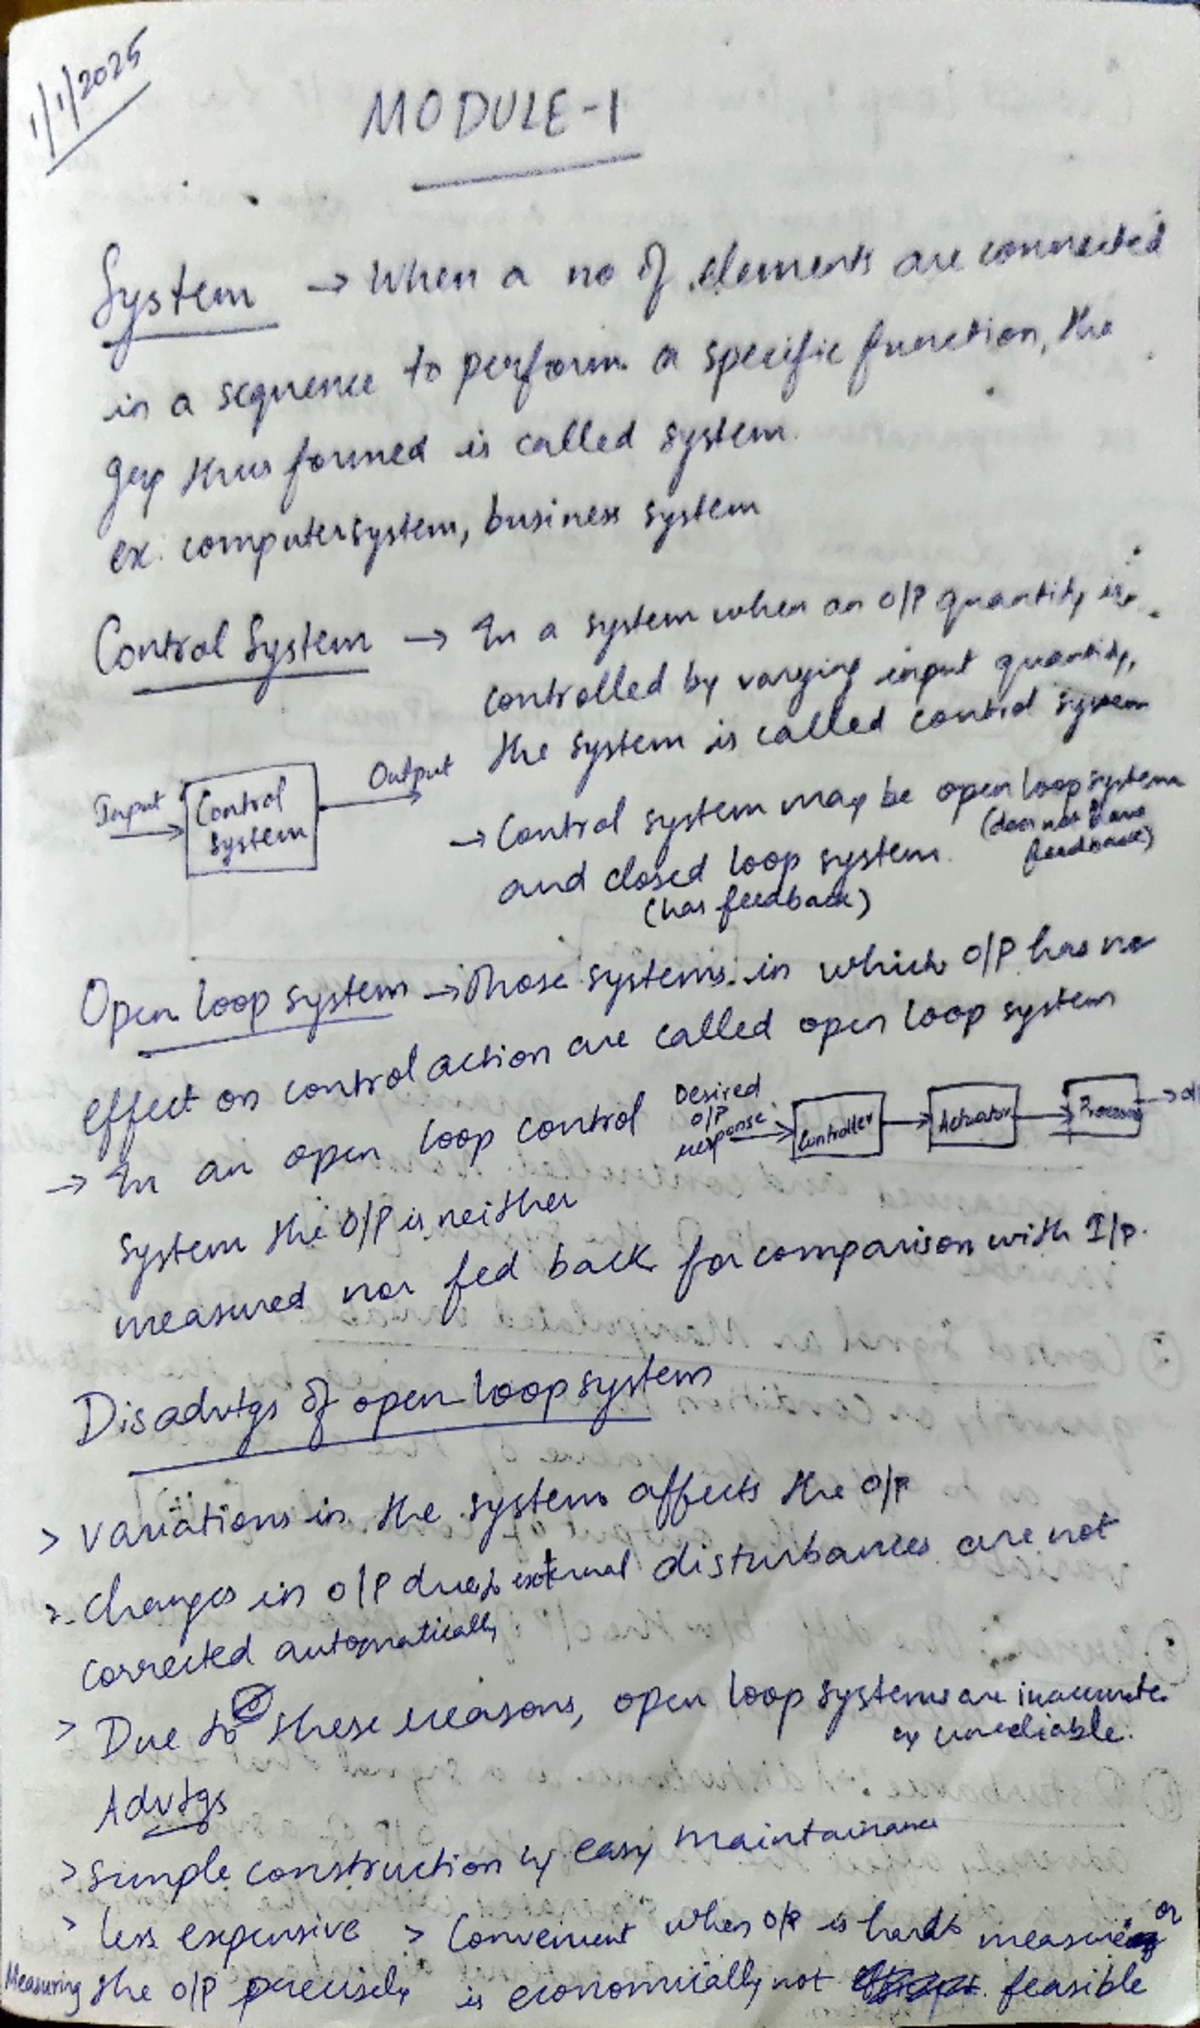 1/1/2025
MODULE-1
System → When a no of elements are connected
in a sequence to perform a specific function, the
grp thus formed is called system.
ex: computer system, business system
Control System → In a system when an O/P quantity is
controlled by varying input quantity,
the system is called control system
Input
Control
System
Output
→ Control system may be open loop system
(does not have
feedback)
and closed loop system.
(has feedback)
Open loop system → Those systems in which O/P has no
effect on control action are called open loop system
→ In an open loop control
system the O/P is neither
measured nor fed back for comparison with I/P.
Desired
O/P
response
Controller
Actuator
Processing
Disadvtgs of open loop system
> Variations in the system affects the O/P
> Changes in O/P due to external disturbances are not
corrected automatically
> Due to these reasons, open loop systems are inaccurate
& unreliable.
Advtgs
> Simple construction & easy maintainance
> less expensive > Convenient when O/P is hard measuring or
Measuring the O/P precisely is economically not feasible